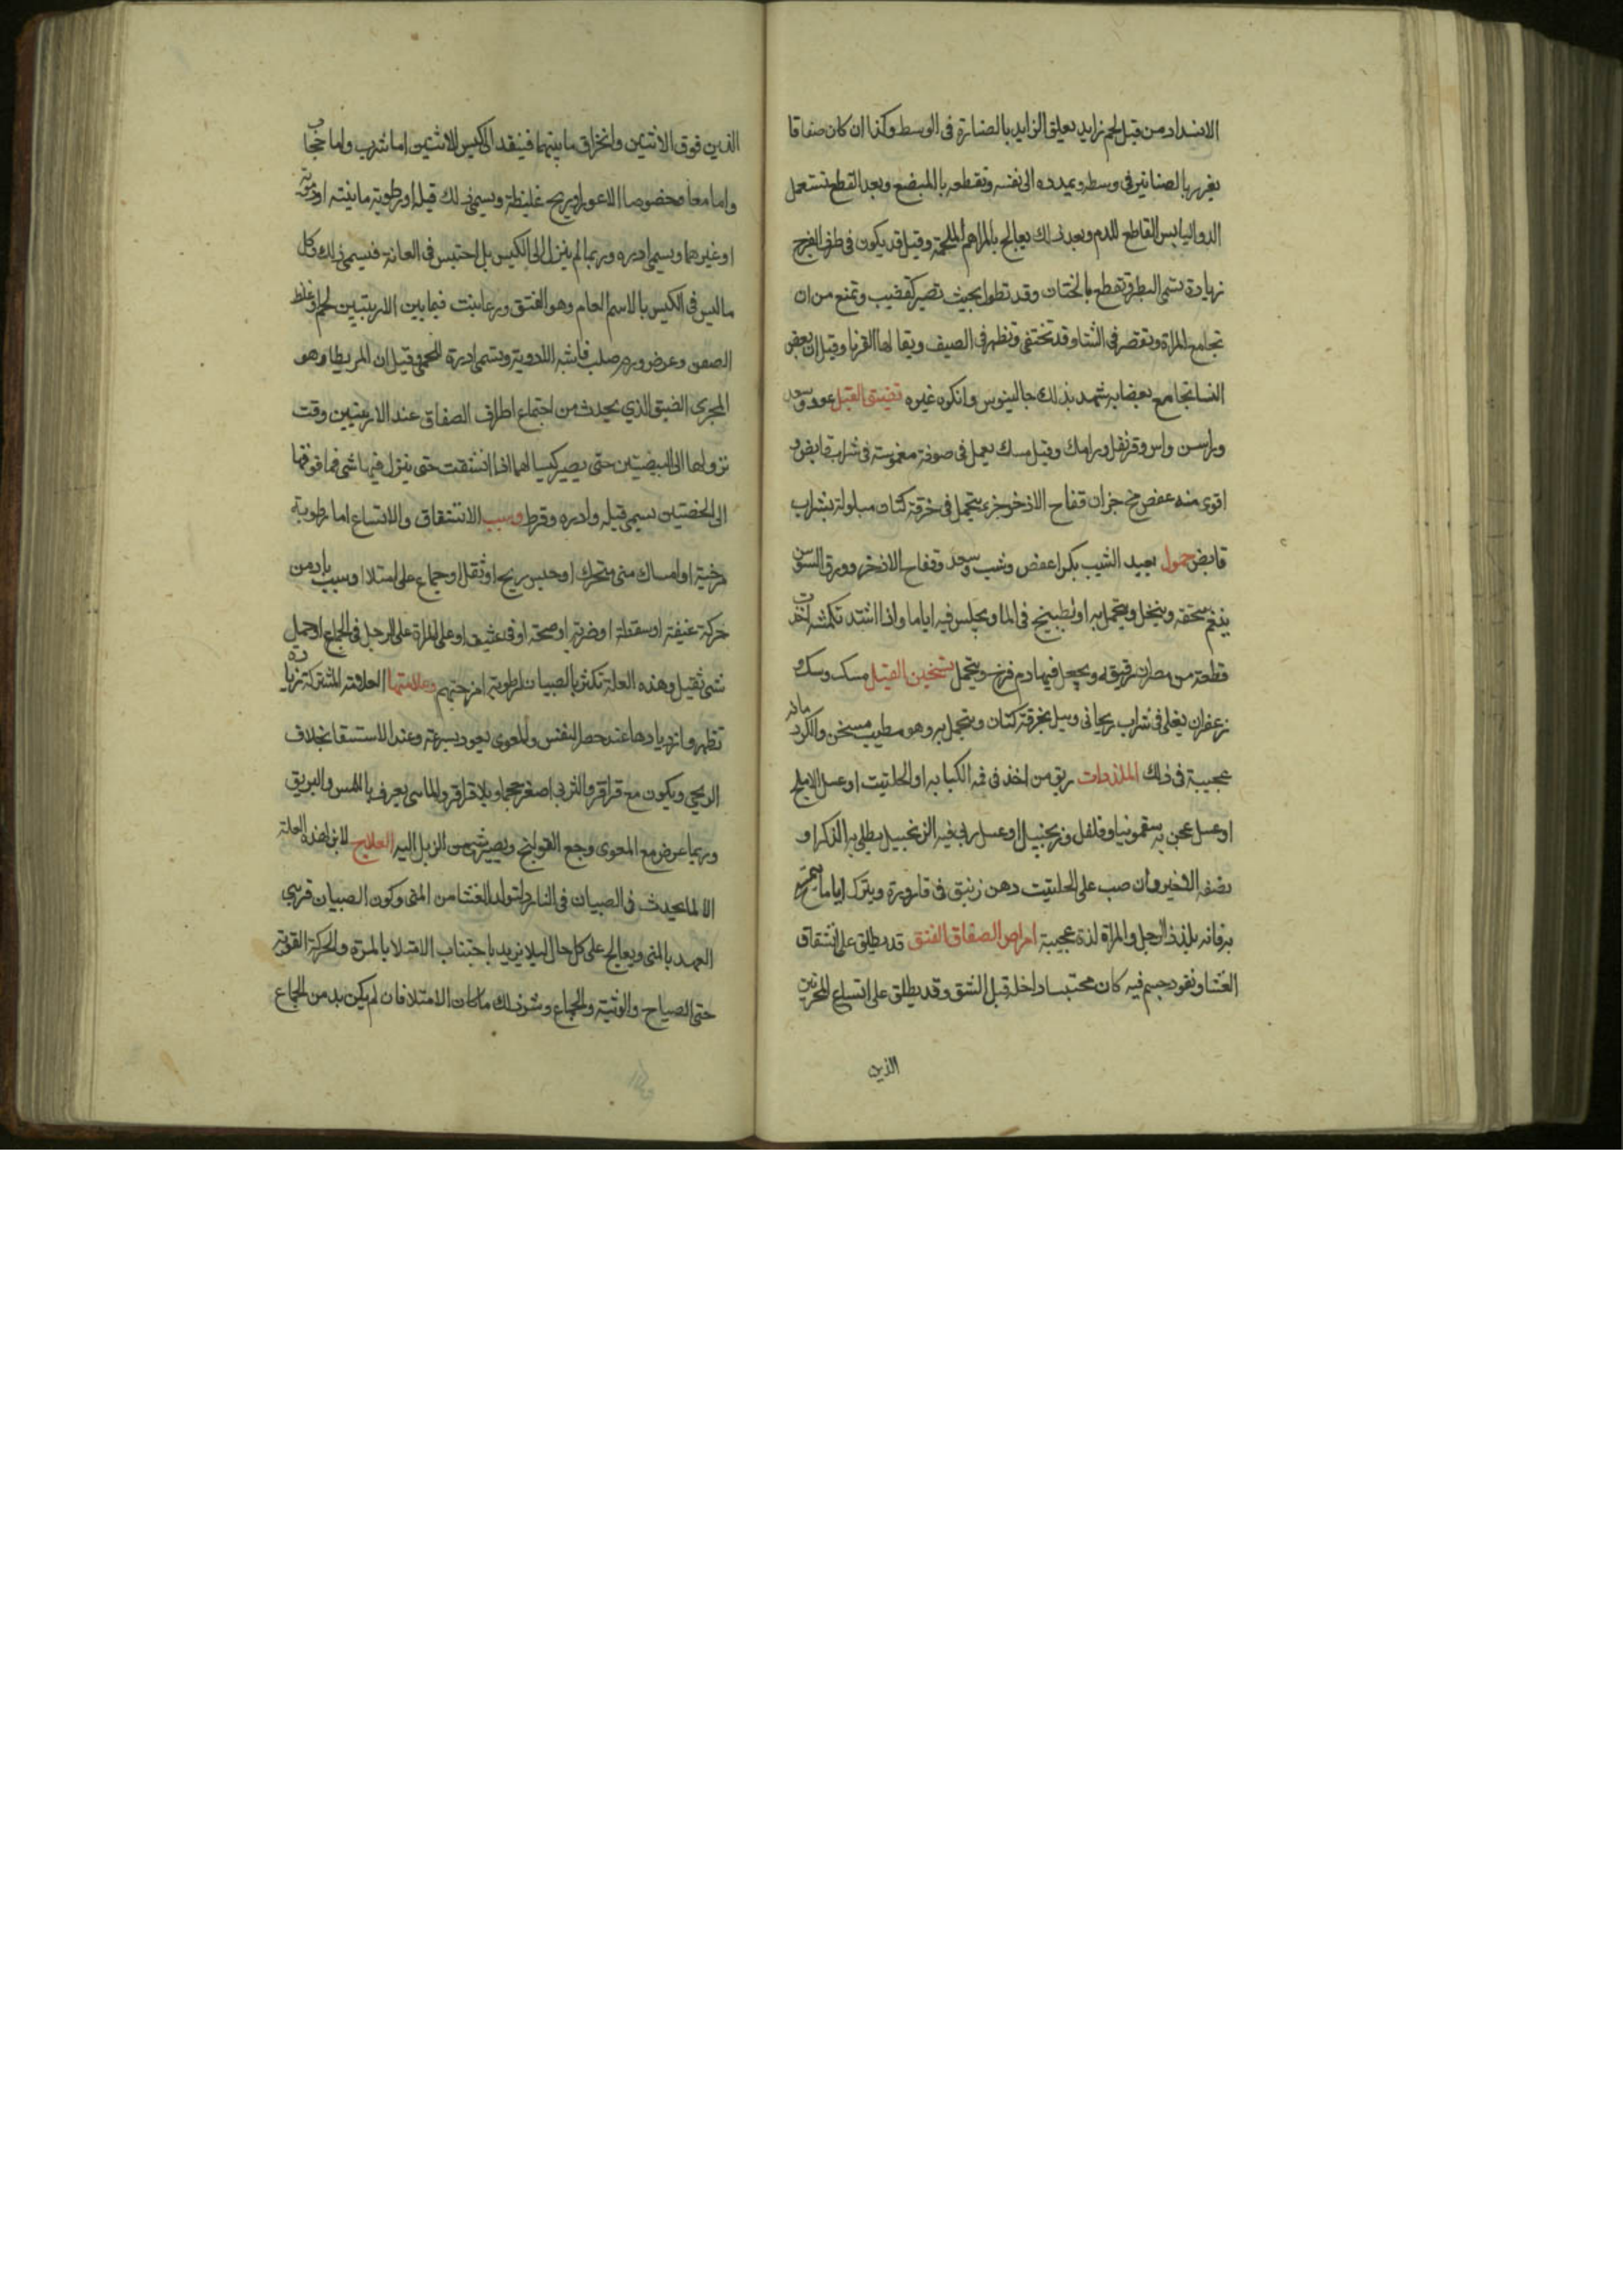 الانسداد من قبل لحم زايد يعلق الزايد بالصنارة فى الوسط وكذا ان كان صفاقا
يغرز بالصنانير فى وسطه ويمدده الى نفسه وتقطعه بالمبضع وبعد القطع تستعمل
الدوا اليابس القاطع للدم وبعد ذلك يعالج بالمراهم الملحمة وقيل قد يكون فى طرف الفرج
زيادة تسمى البظر وتقطع بالختان وقد تطول بحيث تصير كقضيب وتمنع من ان
تجامع المراة وتقصر فى الشتا وقد تختفى وتظهر فى الصيف ويقال لها القرنا وقيل ان بعض
النسا تجامع بعضا به شهد بذلك جالينوس وانكره غيره تضييق القبل عود وسعد
وراسن واس وقرنفل ورامك وقيل مسك يعمل فى صوفة مغموسة فى شراب قابض و
اقوى منه عفص فج جزان قفاح الاذخر جزء يتحمل فى خرقة كتان مبلولة بشراب
قابض حمول يعيد الثيب بكرا عفص وشب وسعد وقفاح الاذخر وورق السوسن
ينعم سحقه وينخل ويتحمل به او يطبخ فى الما ويجلس فيه اياما واذا اشتد تكمشه اخذت
قطعة من مصران رقيق له ويجعل فيها دم فرخ ويتحمل تسخين القبل مسك وسك و
زعفران يغلى فى شراب ريحانى ويبل بخرقة كتان ويتحمل به وهو مطيب مسخن والكردمانه
عجيبة فى ذلك الملذذات ريق من اخذ فى فمه الكبابه او الحلتيت او عسل الاملج
او عسل عجن به سقمونيا وفلفل وزنجبيل او عسل ربى فيه الزنجبيل يطلى به الذكر او
نصفه الاخير وان صب على الحلتيت دهن زنبق فى قارورة ويترك اياما ثم يتمرخ
به فانه يلذذ الرجل والمراة لذة عجيبة امراض الصفاق الفتق قد يطلق على انشقاق
الغشا ونفود جسم فيه كان محتبسا داخله قبل الشق وقد يطلق على اتساع المجريين
الذين
الذين فوق الانثيين وانخراق ما بينهما فينفد الى كيس الانثيين اما ثرب واما حجاب
واما معا مخصوصا الاعور او ريح غليظة ويسمى ذلك قيلة او رطوبة مائية او دموية
او غيرهما ويسمى ادره وربما لم ينزل الى الكيس بل احتبس فى العانة فيسمى ذلك وكل
ما ليس فى الكيس بالاسم العام وهو الفتق وربما نبت فيما بين الاربيتين لحم او غلظ
الصفن وعرض ورم صلب فاشبه الادوية وتسمى ادرة اللحمى وقيل ان المريطا وهو
المجرى الضيق الذي يحدث من اجتماع اطراف الصفاق عند الاربيتين وقت
نزولها الى البيضيتين حتى يصير كيسا لهما اذا انشقت حتى ينزل فيها شى فما فوقها
الى الخصتين يسمى قيله وادره وقرط وسبب الانشقاق والاتساع اما رطوبة
مرخية او امساك منى متحرك او حبس ريح او ثقل او جماع على امتلا او سبب بادمن
حركة عنيفة او سقطة او ضربة او صيحة او قى عنيف او على المراة على الرجل فى الجماع او حمل
شى ثقيل وهذه العلة تكثر بالصبيان لرطوبة امزجتهم وعلامتها العلامة المشتركة زيادة
تظهر وازديادها عند حصر النفس والمعوى يعود بسرعة وعند الاستلقا بخلاف
الريحى ويكون مع قراقر والثربى اصغر حجما وبلا قراقر والمائى يعرف باللمس والبريق
وربما عرض مع المعوى وجع القولنج ويصير شى من الزبل اليه العلاج لا برا لهذه العلة
الا لما يحدث فى الصبيان فى النادر لتولد الغشا من المنى وكون الصبيان قريبى
العهد بالمنى ويعالج على كل حال ليلا يزيد باجتناب الامتلا بالمرة والحركة القوية
حتى الصياح والوثبة والجماع وشر ذلك ما كان الامتلا فان لم يكن بد من الجماع